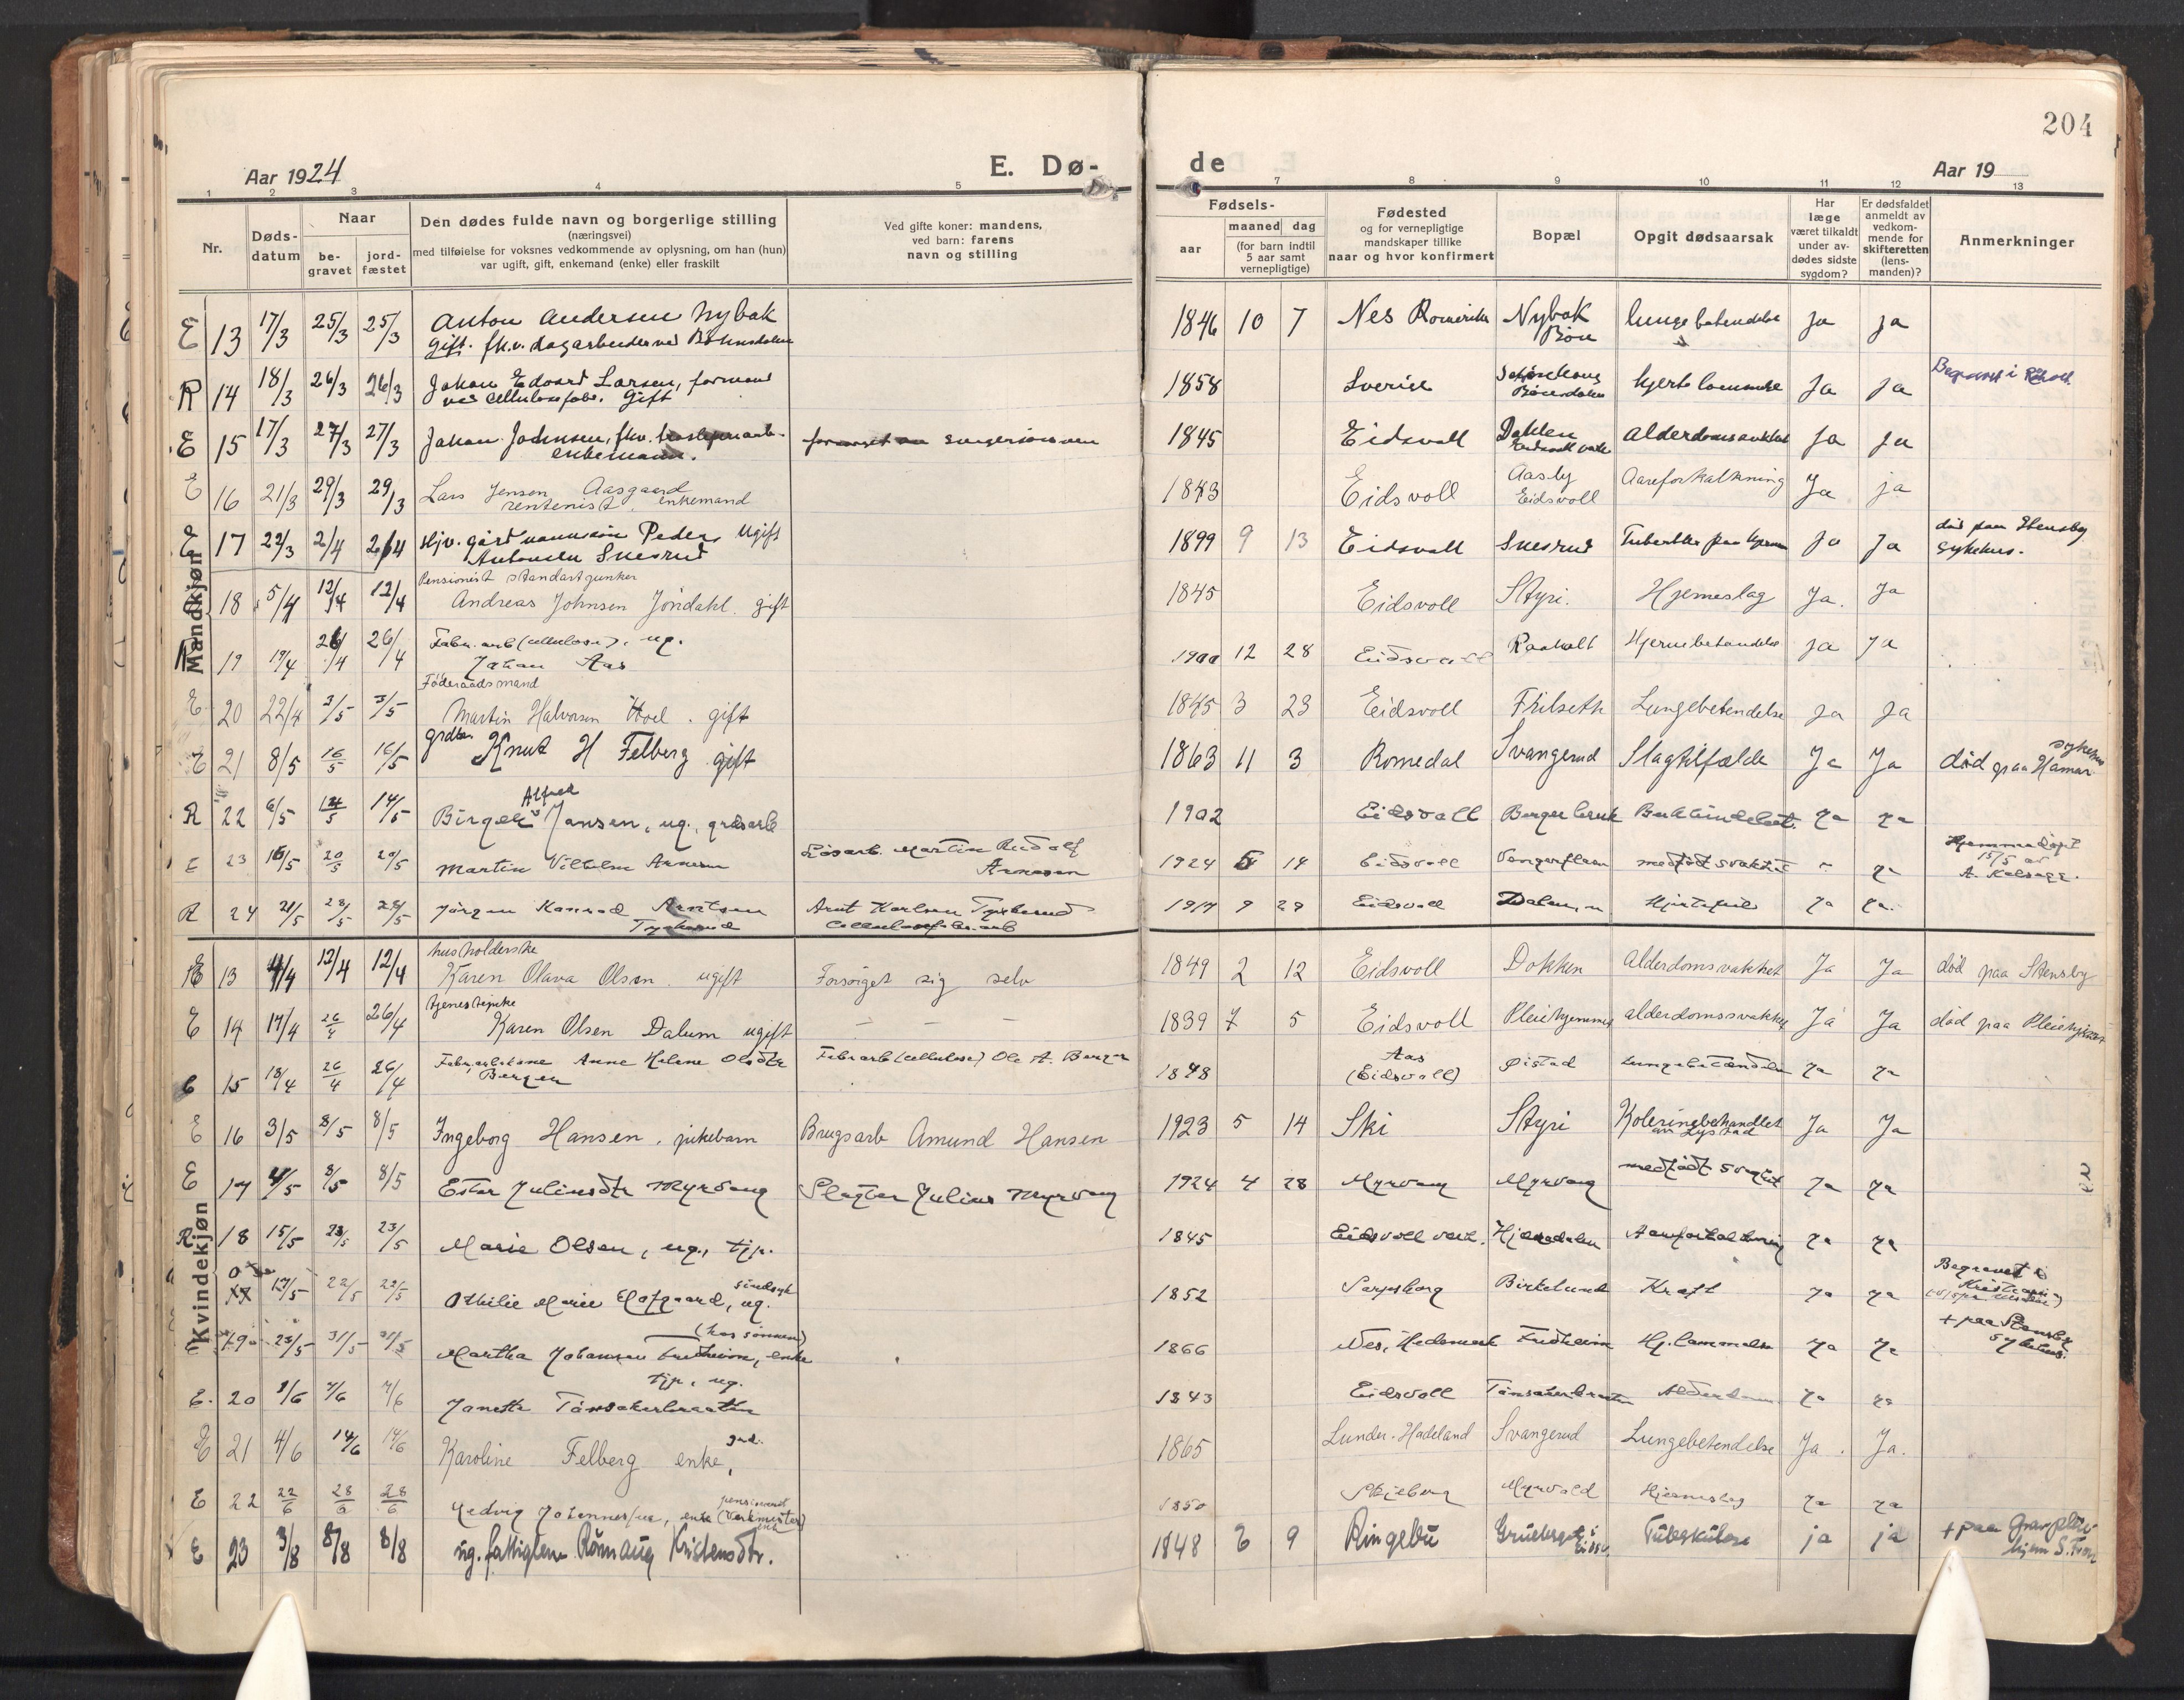 204
Aar 1924
E. Dø-
de
Aar 19
1 2 3 4 5 7 8 9 10 11 12 13
Nr.
Døds-
datum
Naar
be-
gravet
jord-
fæstet
Den dødes fulde navn og borgerlige stilling
(næringsvei)
med tilføielse for voksnes vedkommende av oplysning, om han (hun)
var ugift, gift, enkemand (enke) eller fraskilt
Ved gifte koner: mandens,
ved barn: farens
navn og stilling
Fødsels-
aar
maaned dag
(for barn indtil
5 aar samt
vernepligtige)
Fødested
og for vernepligtige
mandskaper tillike
naar og hvor konfirmert
Bopæl
Opgit dødsaarsak
Har
læge
været tilkaldt
under av-
dødes sidste
sygdom?
Er dødsfaldet
anmeldt av
vedkom-
mende for
skifteretten
(lens-
manden)?
Anmerkninger
Mandkjøn
E 13 17/3 25/3 25/3 Anton Andersen Nybak 1846 10 7 Nes Romerike Nybak lungebetendelse ja ja
Gift. fhv. dagarbeider ved Bøhnsdalen Bøn
R 14 18/3 26/3 26/3 Johan Edvard Larsen, formand 1858 Sverige hjertelammelse Ja ja Begravet i Råholt
ved cellulosefabr. Gift
E 15 17/3 27/3 27/3 Johan Johnsen, fhv. 1845 Eidsvoll Dahlen Alderdomssvakhet ja ja
enkemann.
E 16 21/3 29/3 29/3 Lars Jensen Aasgaard 1843 Eidsvoll Aasby Aareforkalkning Ja ja
rentenist. enkemand Eidsvoll
E 17 22/3 2/4 2/4 Hjv. gårdmannssøn Peder, ugift 1899 9 13 Eidsvoll Snesrud ja Ja død paa Stensby
Antonsen Snesrud sykehus.
Pensionist standartjunker
18 5/4 12/4 12/4 Andreas Johnsen Jøndahl. gift 1845 Eidsvoll Styri. Hjerneslag Ja. Ja
R 19 19/4 26/4 26/4 Fabr. arb (cellulose), ug. 1900 12 28 Eidsvoll Raaholt Hjernebetendelse ja Ja
Johan Aas
Føderaadsmand
E 20 22/4 3/5 3/5 Martin Halvorsen Hoel. gift 1845 3 23 Eidsvoll Frilseth Lungebetendelse Ja Ja
grdbr.
E 21 8/5 16/5 16/5 Knut H Felberg gift 1863 11 3 Romedal Svangerud Slagtilfælde Ja Ja død paa Hamar sykehus
Alfred
R 22 6/5 14/5 14/5 Birger Jansen, ug., grdsarb 1902 Eidsvoll Bergerbruk ja ja
E 23 15/5 20/5 20/5 Martin Vilhelm Arnesen Løsarb. Martin Rudolf 1924 5 14 Eidsvoll medfødt svakhet ja Hjemmedøpt
Arnesen 15/5 av
A. Kolsage.
R 24 21/5 28/5 28/5 Jørgen Konrad Arntsen Arnt Karlsen Tyskerud 1917 9 29 Eidsvoll Dalen Hjertefeil ja ja.
Tyskerud Cellulosefabr. arb
Kvindekjøn
husholderske
E 13 4/4 12/4 12/4 Karen Olava Olsen. ugift Forsørget sig selv 1849 2 12 Eidsvoll Dokken alderdomsvakhet Ja Ja død paa Stensby
tjenestepike
E 14 17/4 26/4 26/4 Karen Olsen Dalum ugift — — — 1839 7 5 Eidsvoll Pleiehjemmet alderdomssvakhet Ja Ja død paa Pleiehjemmet
15 18/4 26/4 26/4 Fabr.arb.kone Anne Helene Olsdtr Fabr.arb (cellulose) Ole A. Berger 1848 Aas Øistad Lungebetændelse Ja ja
Berger (Eidsvoll)
E 16 3/5 8/5 8/5 Ingeborg Hansen, pikebarn Brugsarb Amund Hansen 1923 5 14 Ski Styri Kolerine behandlet Ja Ja
av Lystad
E 17 4/5 8/5 8/5 Ester Juliusdtr Myrvang Slagter Julius Myrvang 1924 4 28 Myrvang Myrvang medfødt svakhet Ja ja
R. 18 15/5 23/5 23/5 Marie Olsen, ug., tjp. 1845 Eidsvoll verk. Aareforkalkning ja ja
17/5 22/5 22/5 Othilie Marie Hofgaard, ug. sindssyk 1852 Sarpsborg Birkelund Kræft ja ja Begravet i
Kristiania
19 25/5 31/5 31/5 Martha Johansen Fridheim, enke (hos sønnen) 1866 Nes, Hedemark Fridheim Hj. lammelse Ja Ja + paa Stensby
sykehus.
E. 20 1/6 7/6 7/6 Janette Tønsakerbraaten tjp., ug. 1843 Eidsvoll Tønsakerbraaten Alderdom ja ja
E 21 4/6 14/6 14/6 Karoline Felberg enke, grd. 1865 Lunder. Hadeland Svangerud Lungebetendelse Ja. Ja.
E 22 22/6 28/6 28/6 Hedvig Johannessen, enke (pensioneret Verkmester) 1850 Skjeberg Myrvold Hjerneslag ja ja
E 23 3/8 8/8 8/8 ug. fattiglem Rønnaug Kristensdtr. 1848 6 9 Ringebu Tuberkulose ja ja + paa
hjem S. Fron